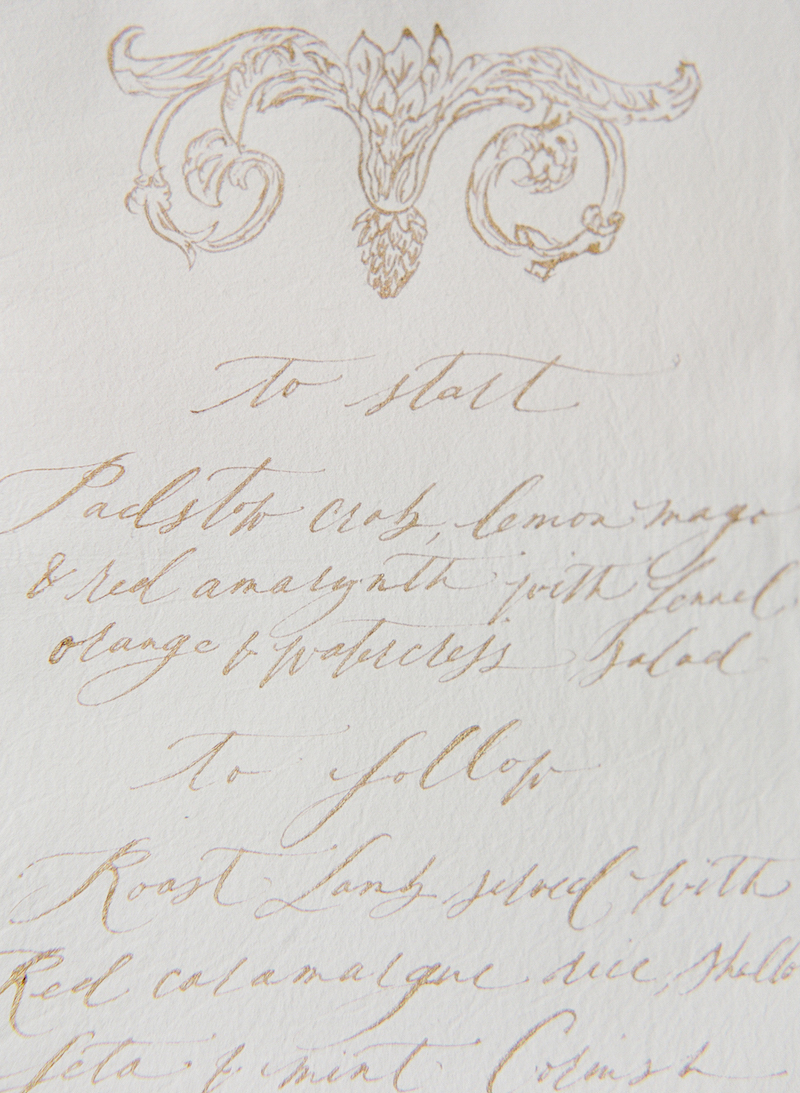 to start
Padstow crab, lemon mayo
& red amarynth with fennel
orange & watercress salad
to follow
Roast Lamb served with
Red camarague rice, shallo
feta & mint Cornish